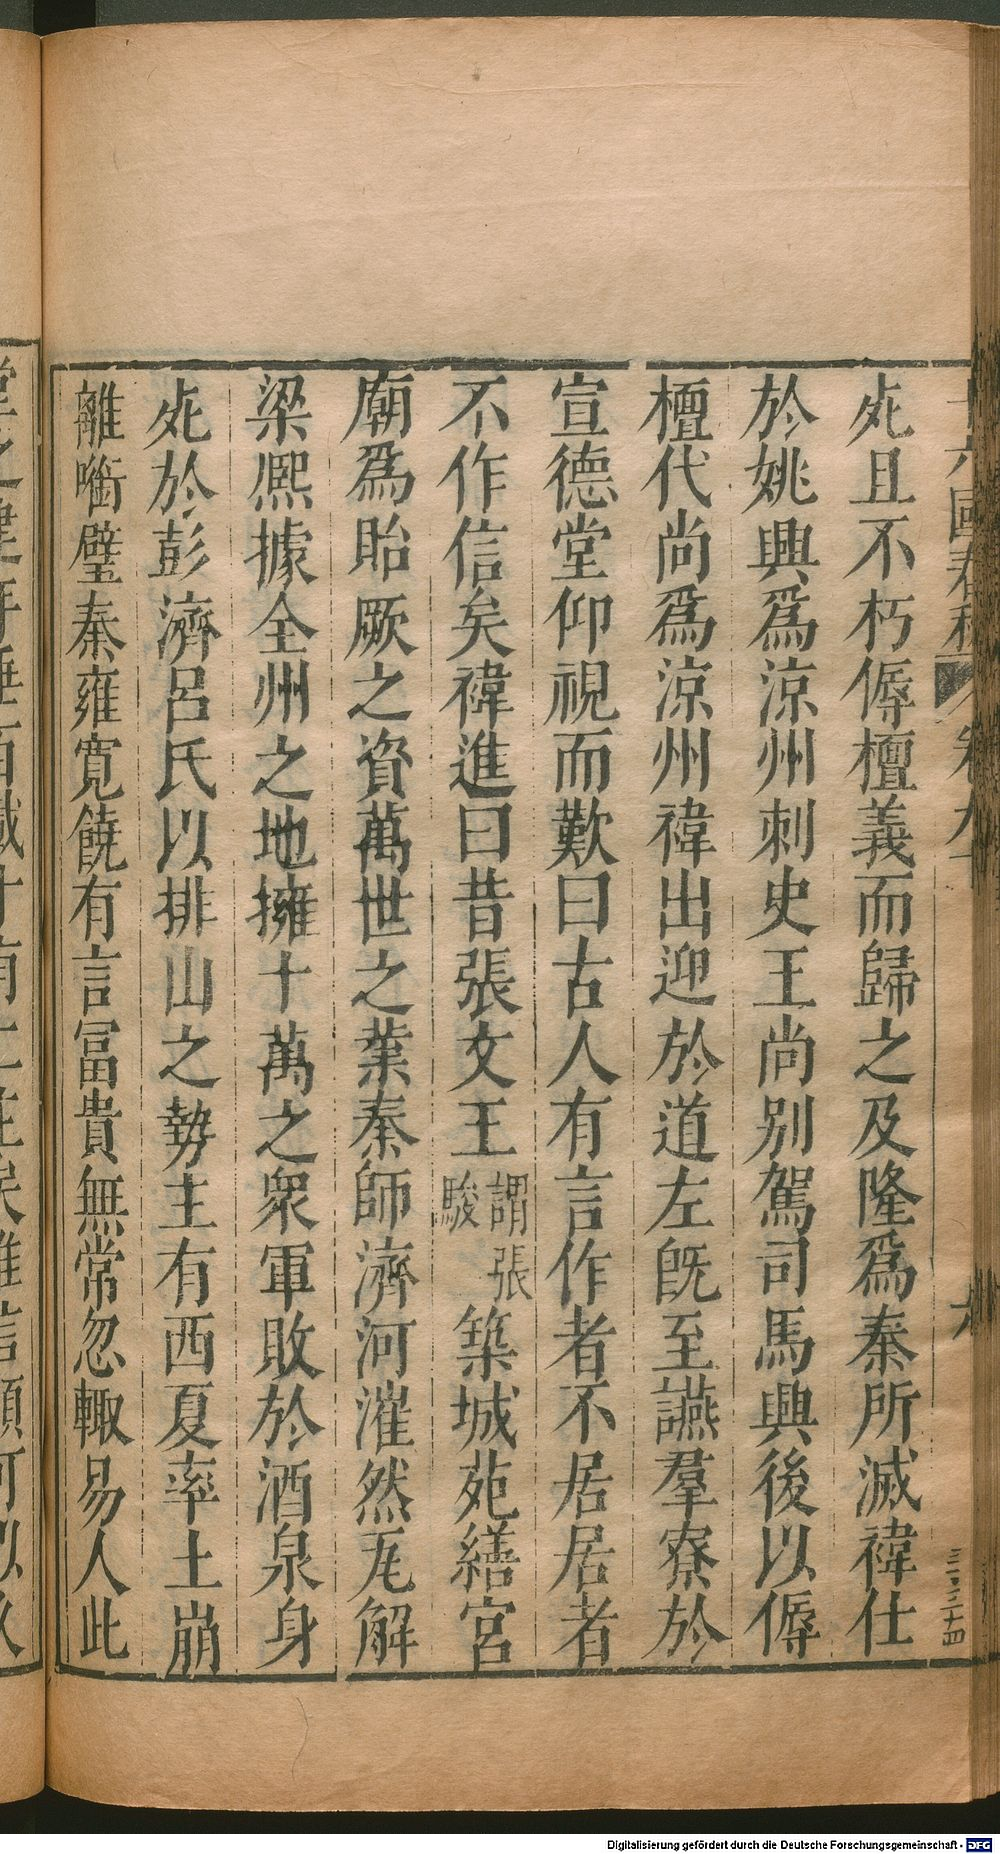 死且不朽傉檀義而歸之及隆爲秦所滅禕仕
於姚興爲涼州刺史王尚別駕司馬興後以傉
檀代尚爲涼州禕出迎於道左旣至讌羣寮於
宣德堂仰視而歎曰古人有言作者不居居者
不作信矣禕進曰昔張文王謂張駿築城苑繕宮
廟爲貽厥之資萬世之業秦師濟河漼然瓦解
梁熙據全州之地擁十萬之衆軍敗於酒泉身
死於彭濟呂氏以排山之勢主有西夏率土崩
離噛璧秦雍寛饒有言冨貴無常忽輙易人此
Digitalisierung gefördert durch die Deutsche Forschungsgemeinschaft - DFG